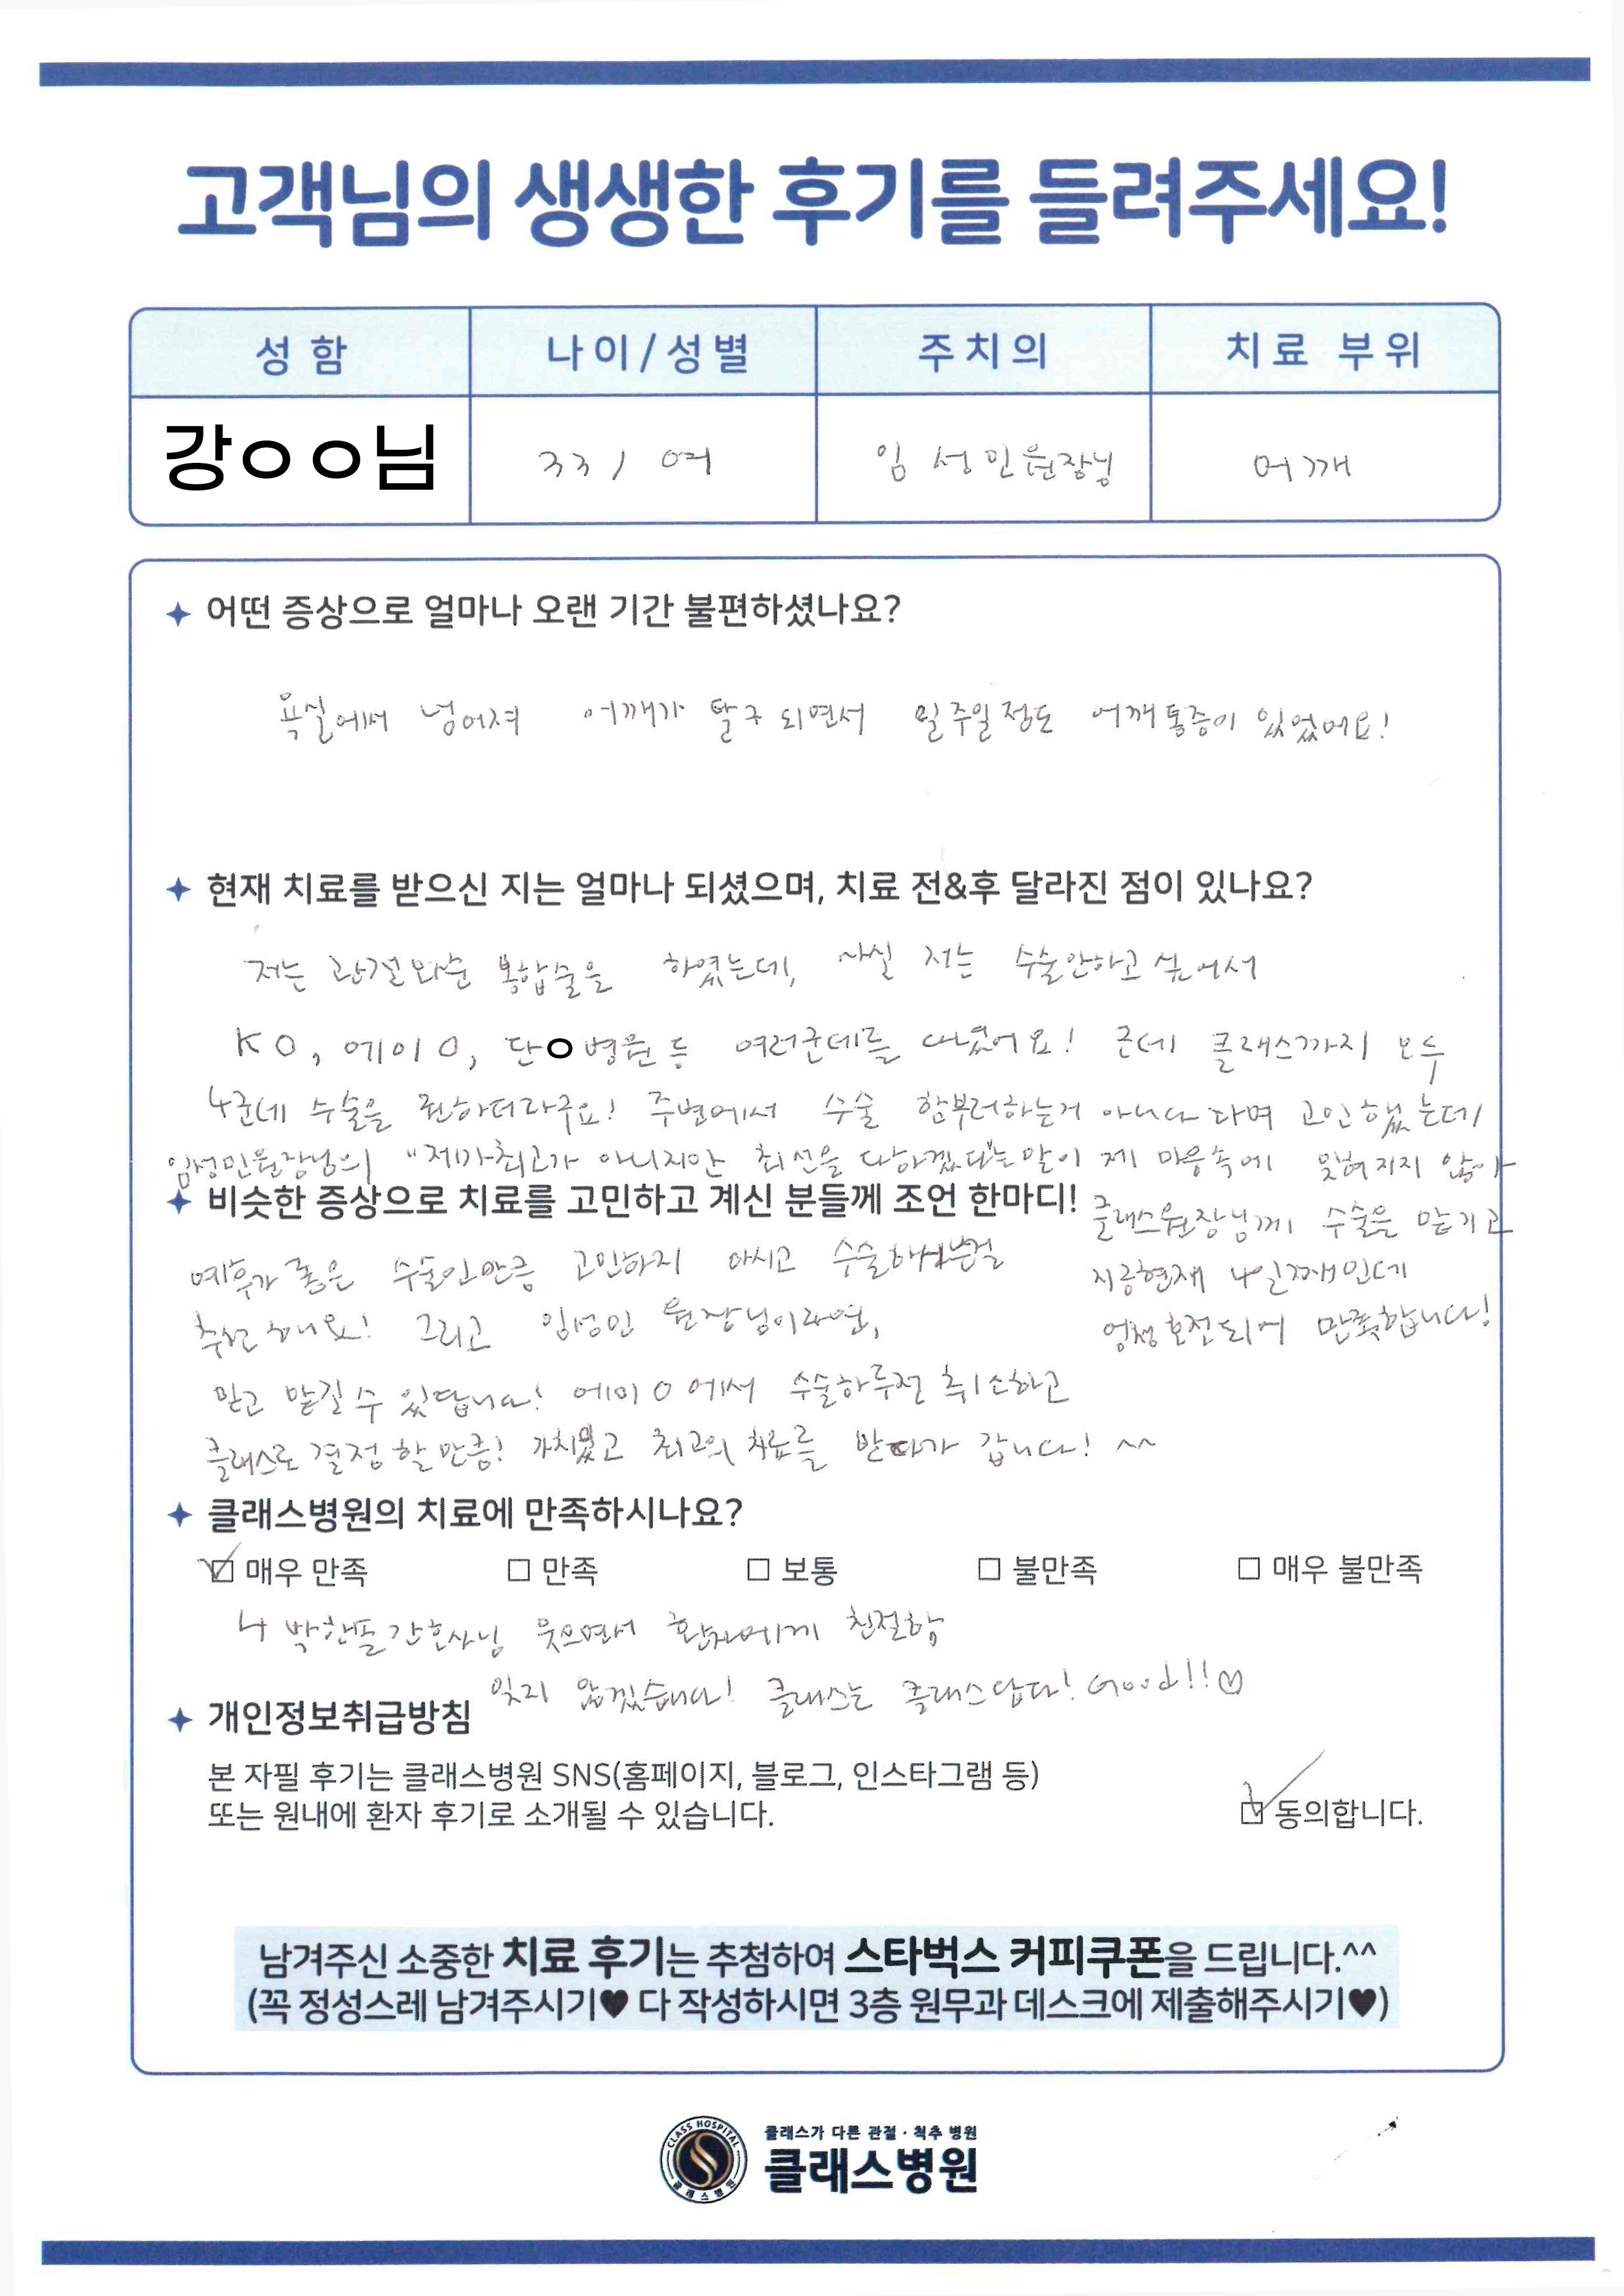 고객님의 생생한 후기를 들려주세요!
성 함 나이/성별 주치의 치료 부위
강ㅇㅇ님 33 / 여 임성민원장님 어깨
어떤 증상으로 얼마나 오랜 기간 불편하셨나요?
욕실에서 넘어져 어깨가 탈구되면서 일주일정도 어깨통증이 있었어요!
현재 치료를 받으신 지는 얼마나 되셨으며, 치료 전&후 달라진 점이 있나요?
저는 관절와순 봉합술을 하였는데, 사실 저는 수술안하고 싶어서
KO, 에이O, 단ㅇ병원 등 여러군데를 다녔어요! 근데 클래스까지 모두
4군데 수술을 권하더라구요! 주변에서 수술 함부러하는거 아니다 라며 고민했는데
임성민원장님의 "제가최고가 아니지만 최선을 다하겠다"는 말이 제 마음속에 잊혀지지 않아
클래스원장님께 수술을 맡기고
지금현재 4일째인데
엄청호전되어 만족합니다!
비슷한 증상으로 치료를 고민하고 계신 분들께 조언 한마디!
예후가 좋은 수술인만큼 고민하지 마시고 수술하시는걸
추천해요! 그리고 임성민 원장님이라면,
믿고 맡길수 있답니다! 에이O에서 수술하루전 취소하고
클래스로 결정할만큼! 가치있고 최고의 치료를 받다가 갑니다! ^^
클래스병원의 치료에 만족하시나요?
매우 만족 만족 보통 불만족 매우 불만족
박한돌간호사님 웃으면서 환자에게 친절함
잊지 않겠습니다! 클래스는 클래스답다! Good!!♡
개인정보취급방침
본 자필 후기는 클래스병원 SNS(홈페이지, 블로그, 인스타그램 등)
또는 원내에 환자 후기로 소개될 수 있습니다.
동의합니다.
남겨주신 소중한 치료 후기는 추첨하여 스타벅스 커피쿠폰을 드립니다.^^
(꼭 정성스레 남겨주시기♥ 다 작성하시면 3층 원무과 데스크에 제출해주시기♥)
CLASS HOSPITAL
클래스병원
클래스가 다른 관절·척추 병원
클래스병원